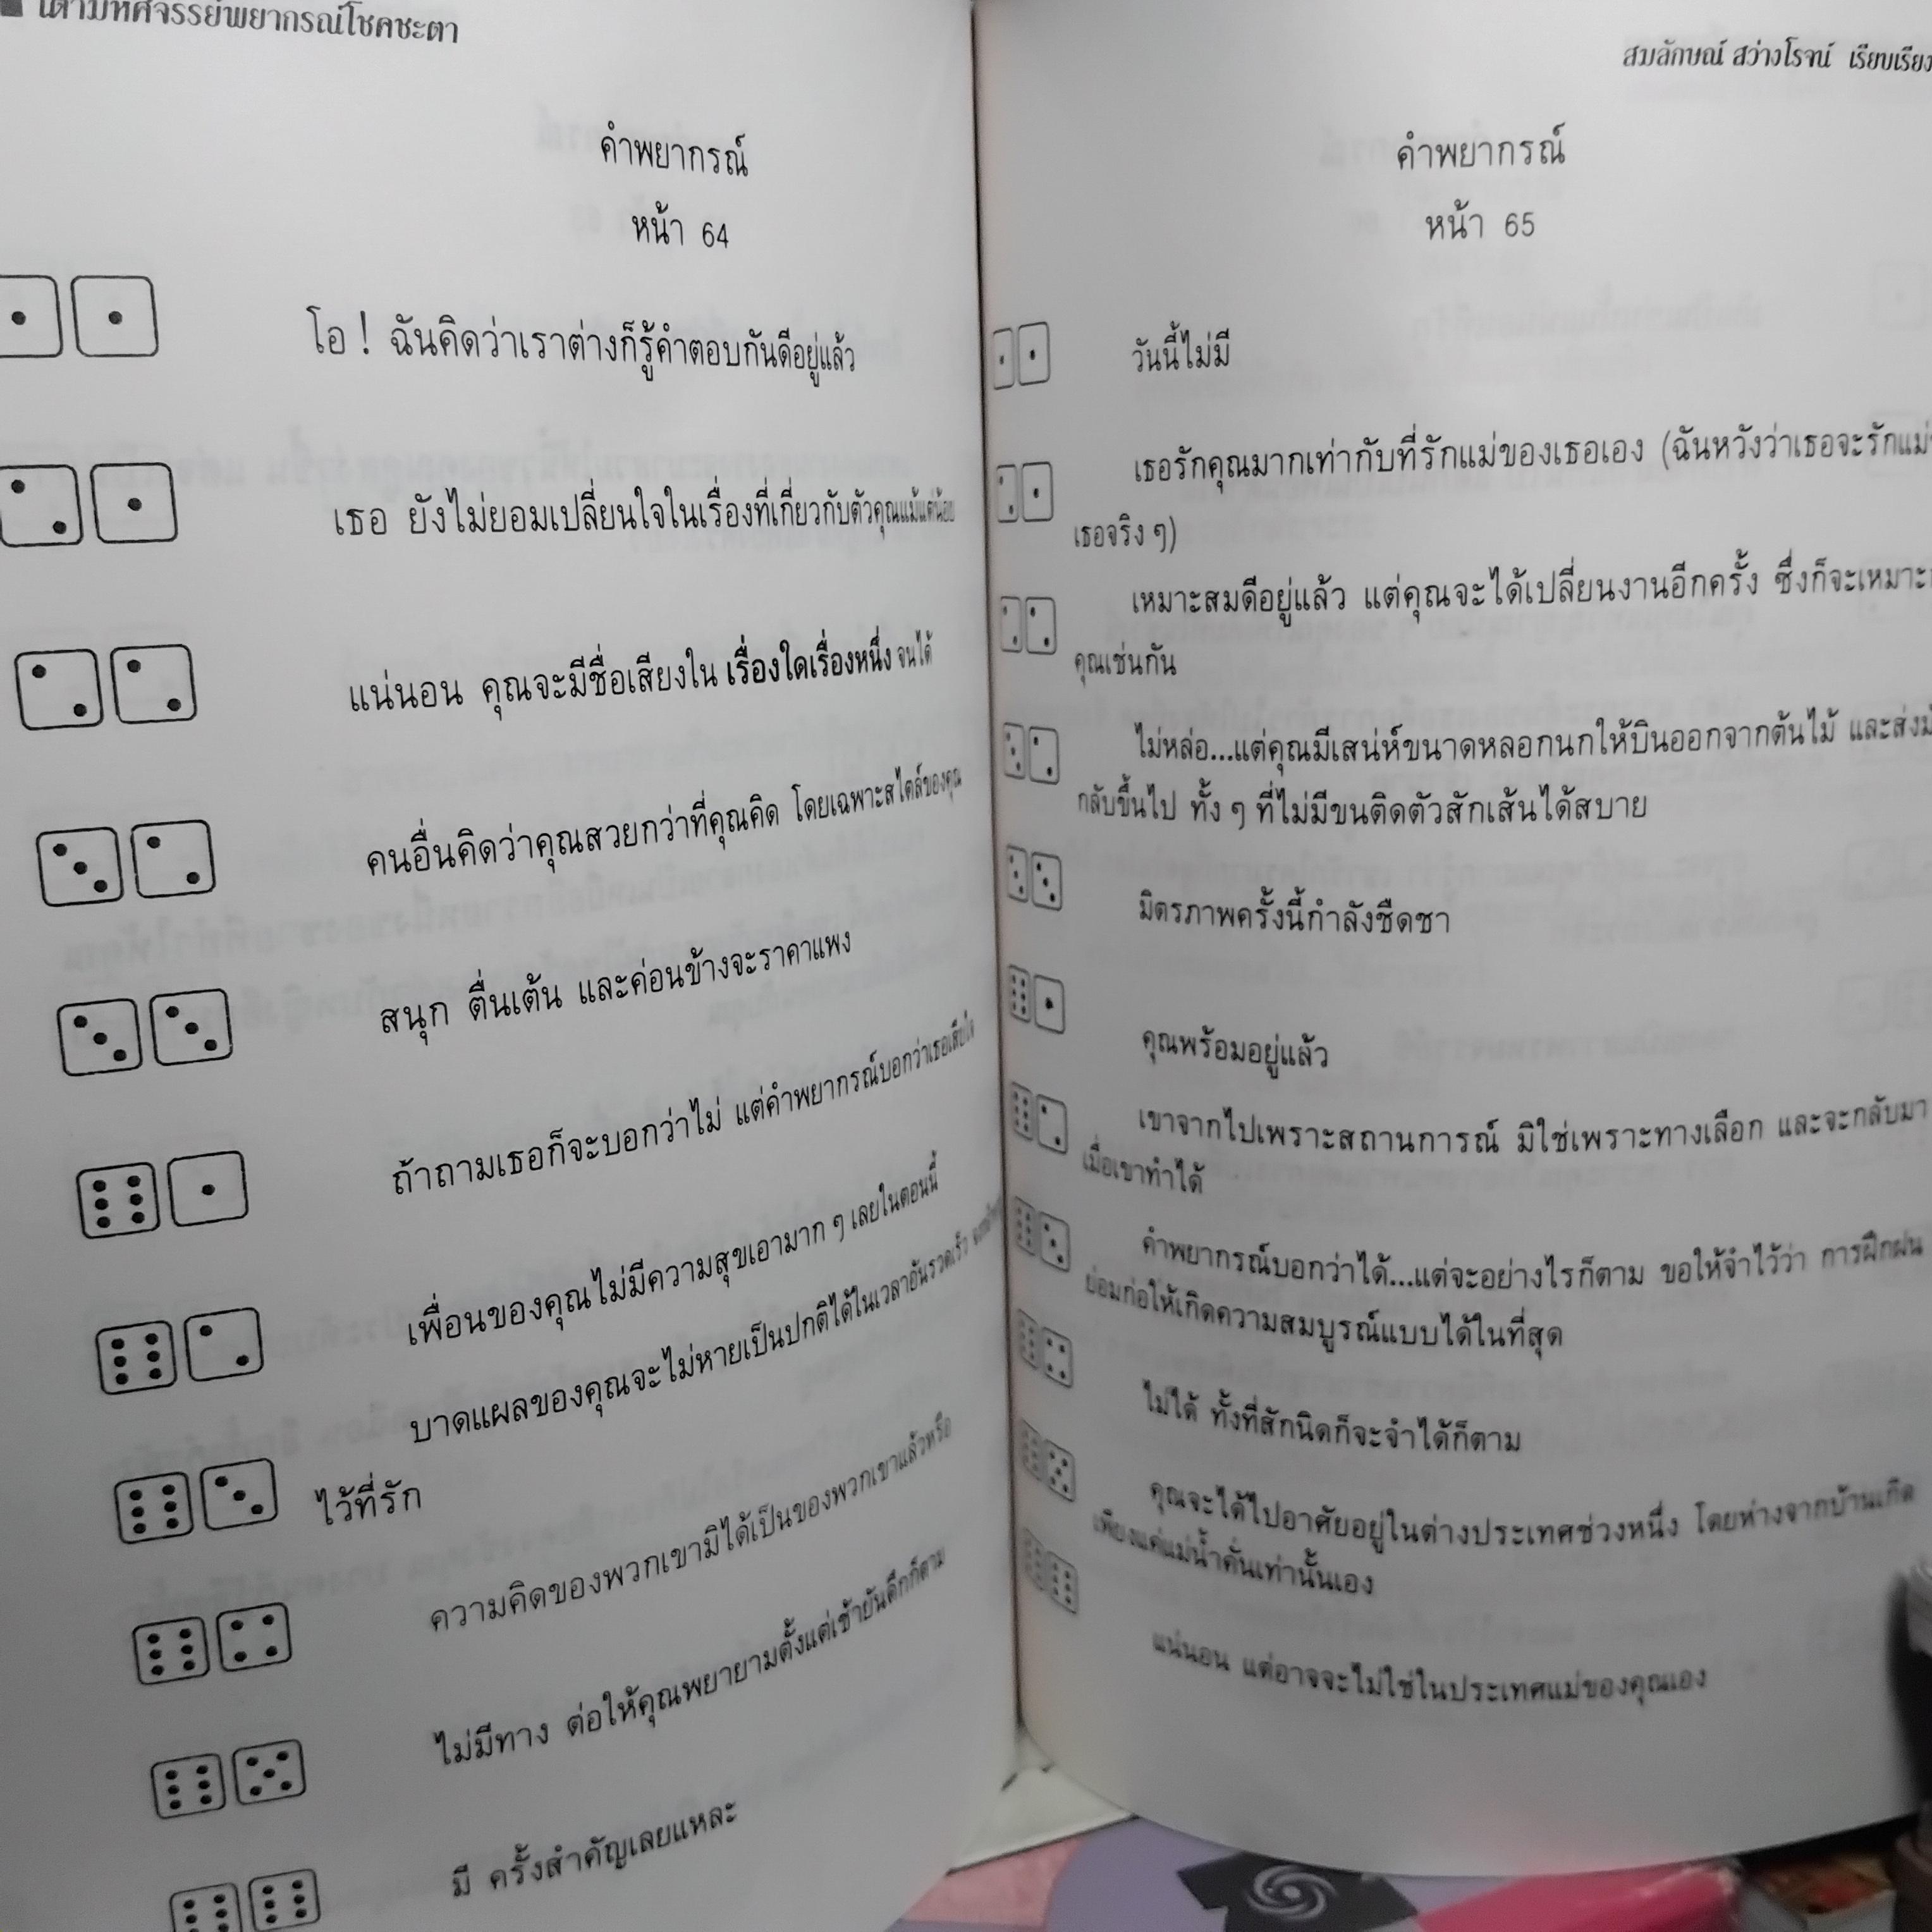 เต๋ามหัศจรรย์พยากรณ์โชคชะตา
คำพยากรณ์
หน้า 64
โอ ! ฉันคิดว่าเราต่างก็รู้คำตอบกันดีอยู่แล้ว
เธอ ยังไม่ยอมเปลี่ยนใจในเรื่องที่เกี่ยวกับตัวคุณแม้แต่น้อย
แน่นอน คุณจะมีชื่อเสียงใน เรื่องใดเรื่องหนึ่ง จนได้
คนอื่นคิดว่าคุณสวยกว่าที่คุณคิด โดยเฉพาะสไตล์ของคุณ
สนุก ตื่นเต้น และค่อนข้างจะราคาแพง
ถ้าถามเธอก็จะบอกว่าไม่ แต่คำพยากรณ์บอกว่าเธอเสียใจ
เพื่อนของคุณไม่มีความสุขเอามาก ๆ เลยในตอนนี้
บาดแผลของคุณจะไม่หายเป็นปกติได้ในเวลาอันรวดเร็ว
ไว้ที่รัก
ความคิดของพวกเขามิได้เป็นของพวกเขาแล้วหรือ
ไม่มีทาง ต่อให้คุณพยายามตั้งแต่เช้ายันดึกก็ตาม
มี ครั้งสำคัญเลยแหละ
สมลักษณ์ สว่างโรจน์ เรียบเรียง
คำพยากรณ์
หน้า 65
วันนี้ไม่มี
เธอรักคุณมากเท่ากับที่รักแม่ของเธอเอง (ฉันหวังว่าเธอจะรักแม่
เธอจริง ๆ)
เหมาะสมดีอยู่แล้ว แต่คุณจะได้เปลี่ยนงานอีกครั้ง ซึ่งก็จะเหมาะ
คุณเช่นกัน
ไม่หล่อ...แต่คุณมีเสน่ห์ขนาดหลอกนกให้บินออกจากต้นไม้ และส่ง
กลับขึ้นไป ทั้ง ๆ ที่ไม่มีขนติดตัวสักเส้นได้สบาย
มิตรภาพครั้งนี้กำลังชืดชา
คุณพร้อมอยู่แล้ว
เขาจากไปเพราะสถานการณ์ มิใช่เพราะทางเลือก และจะกลับมา
เมื่อเขาทำได้
คำพยากรณ์บอกว่าได้...แต่จะอย่างไรก็ตาม ขอให้จำไว้ว่า การฝึกฝน
ย่อมก่อให้เกิดความสมบูรณ์แบบได้ในที่สุด
ไม่ได้ ทั้งที่สักนิดก็จะจำได้ก็ตาม
คุณจะได้ไปอาศัยอยู่ในต่างประเทศช่วงหนึ่ง โดยห่างจากบ้านเกิด
เพียงแค่แม่น้ำคั่นเท่านั้นเอง
แน่นอน แต่อาจจะไม่ใช่ในประเทศแม่ของคุณเอง